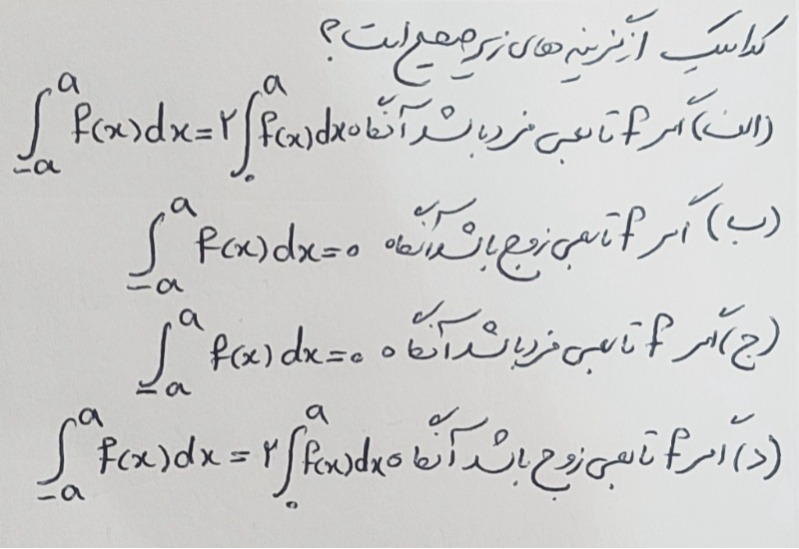 کدامیک از گزینه های زیر صحیح است؟
الف) اگر f تابعی فرد باشد آنگاه ∫_{-a}^{a} f(x)dx = ۲∫_{۰}^{a} f(x)dx
ب) اگر f تابعی زوج باشد آنگاه ∫_{-a}^{a} f(x)dx = ۰
ج) اگر f تابعی فرد باشد آنگاه ∫_{-a}^{a} f(x)dx = ۰
د) اگر f تابعی زوج باشد آنگاه ∫_{-a}^{a} f(x)dx = ۲∫_{۰}^{a} f(x)dx